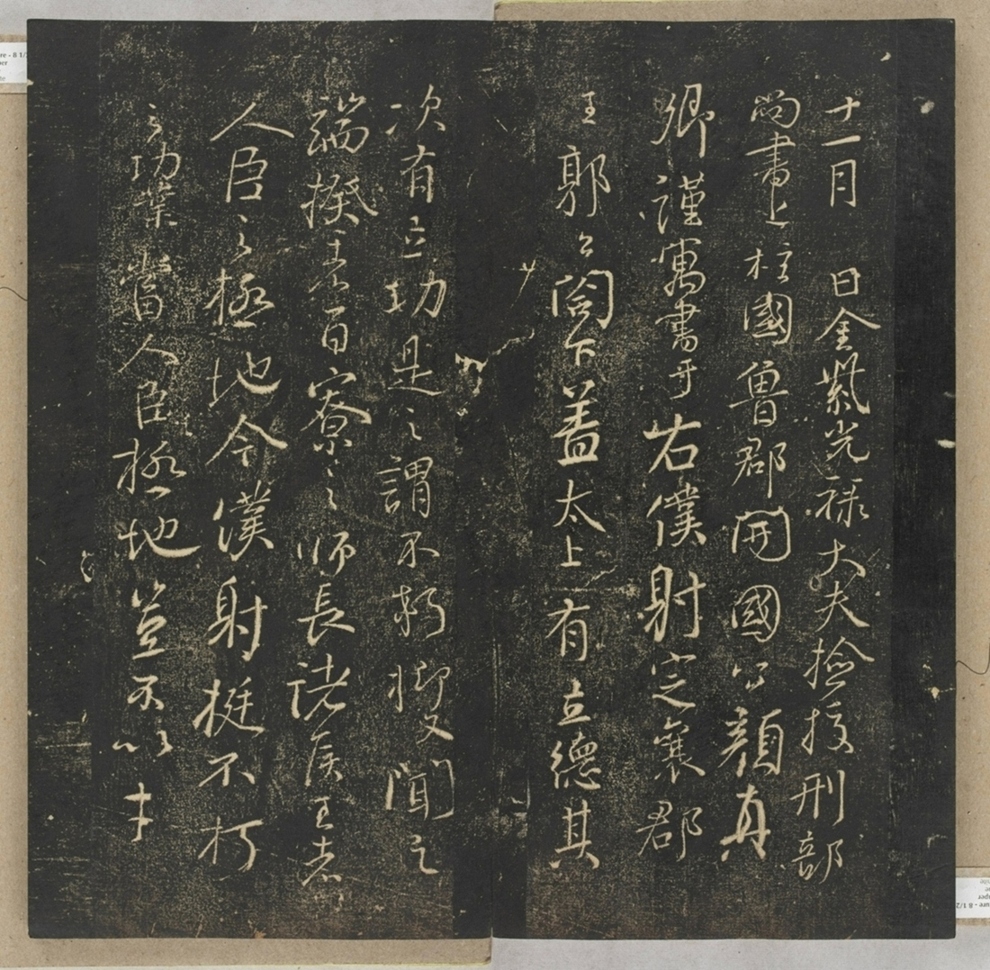 十一月 日金紫光祿大夫檢校刑部
尚書上柱國魯郡開國公顏真
卿謹寓書于右僕射定襄郡
王郭公閤下蓋太上有立德其
次有立功是之謂不朽抑又聞之
端揆者百寮之師長諸侯王者
人臣之極地今僕射挺不朽
之功業當人臣極地豈不以才